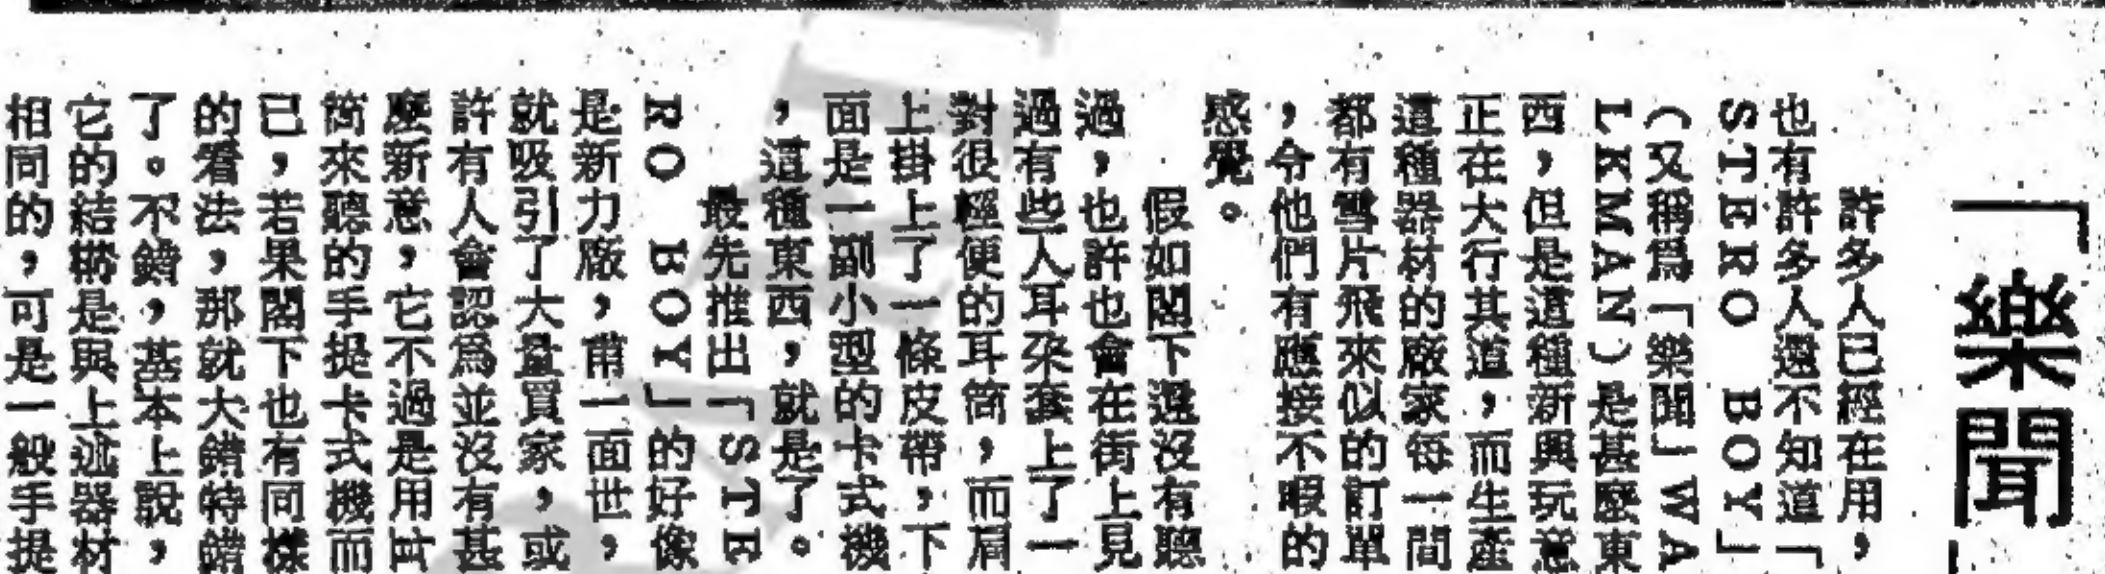 「樂聞」
許多人已經在用，
也有許多人還不知道「
STERO BOY」
（又稱爲「樂聞」WA
LKMAN）是甚麼東
西，但是這種新興玩意
正在大行其道，而生產
這種器材的廠家每一間
都有雪片飛來似的訂單
，令他們有應接不暇的
感覺。
假如閣下還沒有聽
過，也許也會在街上見
過有些人耳朶套上了一
對很輕便的耳筒，而肩
上掛上了一條皮帶，下
面是一副小型的卡式機
，這種東西，就是了。
最先推出「STE
RO BOY」的好像
是新力廠，甫一面世，
就吸引了大量買家，或
許有人會認爲並沒有甚
麼新意，它不過是用耳
筒來聽的手提卡式機而
已，若果閣下也有同樣
的看法，那就大錯特錯
了。不錯，基本上說，
它的結構是與上述器材
相同的，可是一般手提